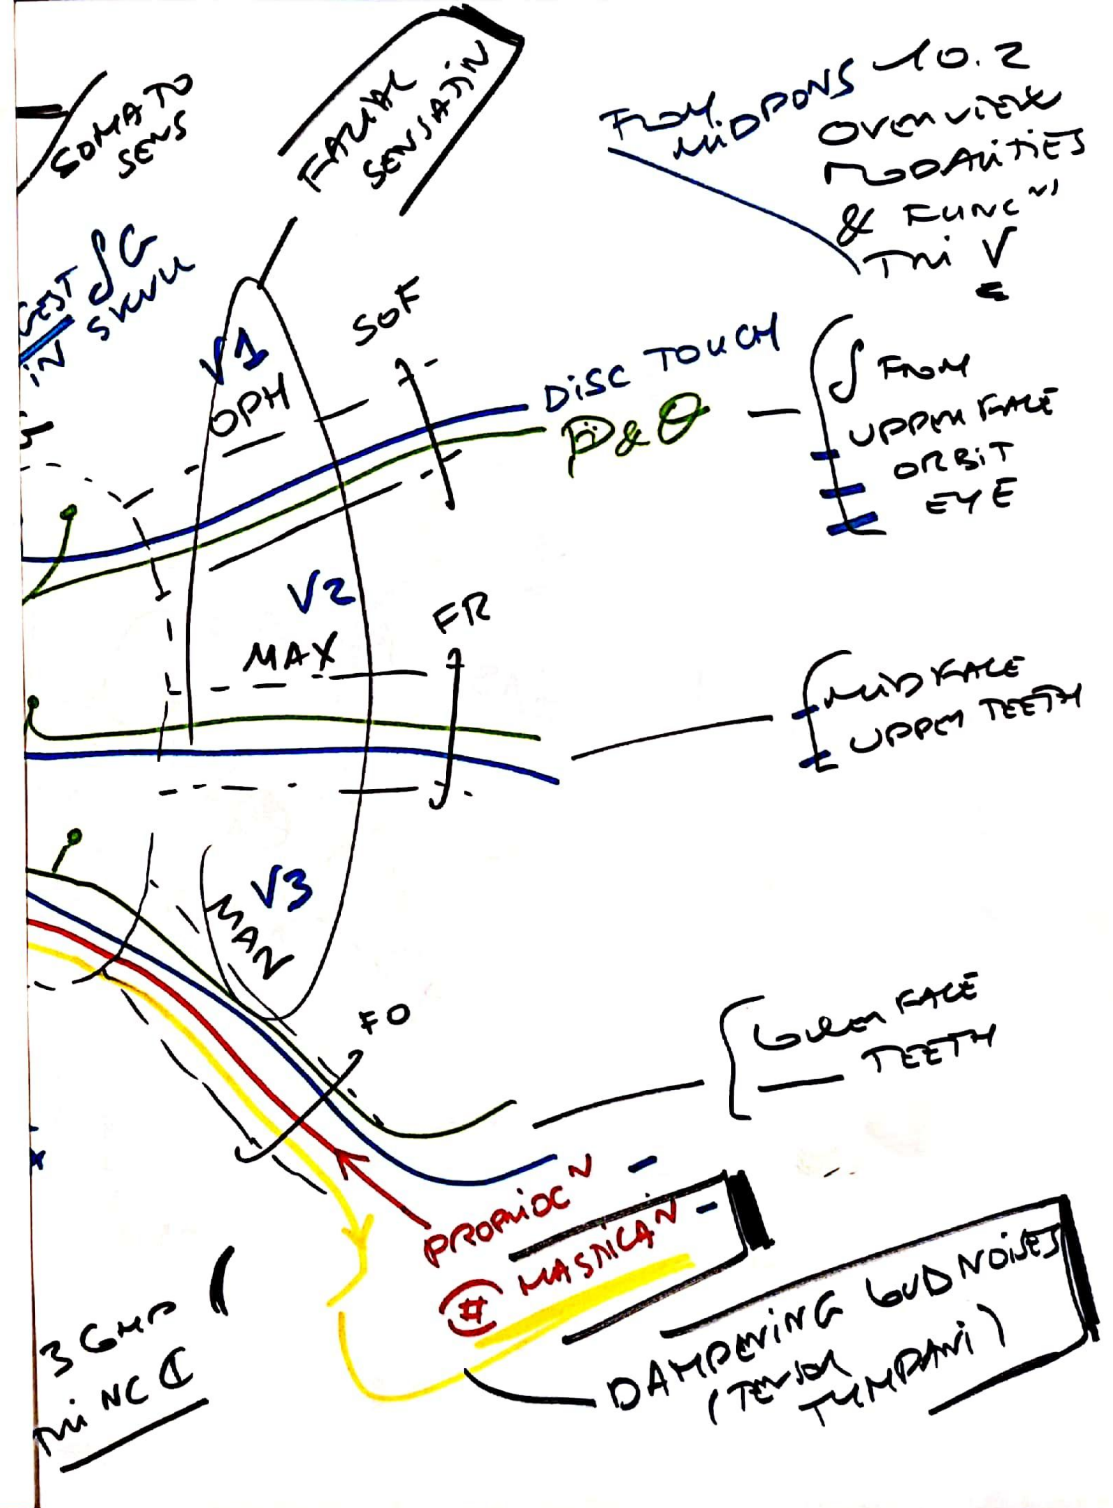 SOMATO
SENS
FACIAL
SENSATIN
FROM
MIDPONS
10.2
OVERVIEW
MODALITIES
& FUNC NS
TRI V
GEST SG
IN SKULL
V1
OPH
SOF
DISC TOUCH
P & θ
FROM
UPPER FACE
ORBIT
EYE
V2
MAX
FR
MIDFACE
UPPER TEETH
V3
MAN
FO
LOWER FACE
TEETH
PROPRIOC N
# MASTICA N
DAMPENING LOUD NOISES
(TENSOR
TYMPANI)
3 COMP
TRI NC